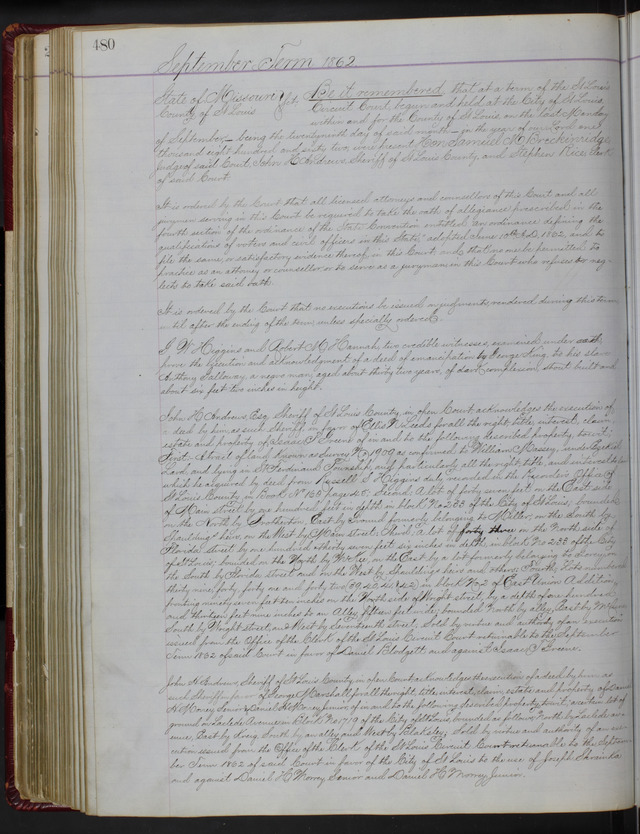 480
September Term 1862
State of Missouri
County of St Louis } Ss. Be it remembered that at a term of the St Louis
Circuit Court begun and held at the City of St Louis
within and for the County of St Louis on the last Monday
of September being the twenty ninth day of said month in the year of our Lord one
thousand eight hundred and sixty two, were present Hon Samuel M Breckinridge
Judge of said Court, John H Andrews Sheriff of St Louis County, and Stephen Rice, Clerk
of said Court
It is ordered by the Court that all licensed attorneys and counsellors of this Court and all
jurymen serving in this Court be required to take the oath of allegiance prescribed in the
fourth section of the ordinance of the State Convention entitled "an ordinance defining the
qualifications of voters and civil officers in this State" adopted June 10th A.D. 1862, and to
file the same, or satisfactory evidence thereof, in this Court, and that no one be permitted to
practice as an attorney or counsellor or to serve as a juryman in this Court who refuses or neg-
lects to take said oath.
It is ordered by the Court that no executions be issued on judgments rendered during this term
until after the ending of the term, unless specially ordered.
J W Higgins and Robert M Hannah, two credible witnesses, examined under oath
prove the execution and acknowledgment of a deed of emancipation by George King, to his slave
Anthony Galloway, a negro man, aged about thirty two years, of dark complexion, stout built and
about six feet two inches in height.
John H Andrews, Esq. Sheriff of St Louis County, in open Court acknowledges the execution of
a deed by him, as such Sheriff, in favor of Ellis N Leeds for all the right, title, interest, claim
estate and property of Isaac J Greene of in and to the following described property, to wit:
First. A tract of land known as Survey No 1909 as confirmed to William Massey, under Ezekiel
Lard, and lying in St Ferdinand Township, and particularly all the right, title, and interest
which he acquired by deed from Russell S Higgins date, recorded in the Recorder's Office of
St Louis County in Book No 155 page 45. Second. A lot of forty seven feet on the East side
of Main Street by one hundred feet in depth in block No 233 of the City of St Louis, bounded
on the North by East by Ground formerly belonging to Miller, on the South by
Spaulding's heirs, on the West by Main street; Third, a lot of forty three on the North side of
Florida Street by one hundred and thirty seven feet six inches in depth in block No 233 of the City
of St Louis, bounded on the North by on the East by a lot formerly belonging to
the South by Florida street and on the West by Spaulding's heirs and others; Fourth, Lots numbered
thirty nine, forty, forty one and forty two (39, 40, 41, 42) in block No 2 of East Union Addition,
fronting ninety seven feet ten inches on the North side of Wright street, by a depth of one hundred
and thirteen feet nine inches to an Alley fifteen feet wide, bounded North by alley, East by
South by Wright street, and West by Seventeenth street; Sold by virtue and authority of an execution
issued from the Office of the Clerk of the St Louis Circuit Court returnable to the September
Term 1862 of said Court in favor of Daniel Blodgett and against Isaac J Greene.
John H Andrews, Sheriff of St Louis County, in open Court acknowledges the execution of a deed by him as
such Sheriff in favor of George Marshall for all the right, title, interest, claim, estate and property of Daniel
H Morey Senior & Daniel H Morey Junior of in and to the following described property to wit, a certain lot of
ground on Laclede Avenue in Block No 1719 of the City of St Louis, bounded as follows North by Laclede Av-
enue, East by Craig, South by an alley and West by Blakesley; Sold by virtue and authority of an exe-
cution issued from the Office of the Clerk of the St Louis Circuit Court returnable to the Septem-
ber Term 1862 of said Court in favor of the City of St Louis to the use of Joseph Shrainka
and against Daniel H Morey Senior and Daniel H Morey Junior.